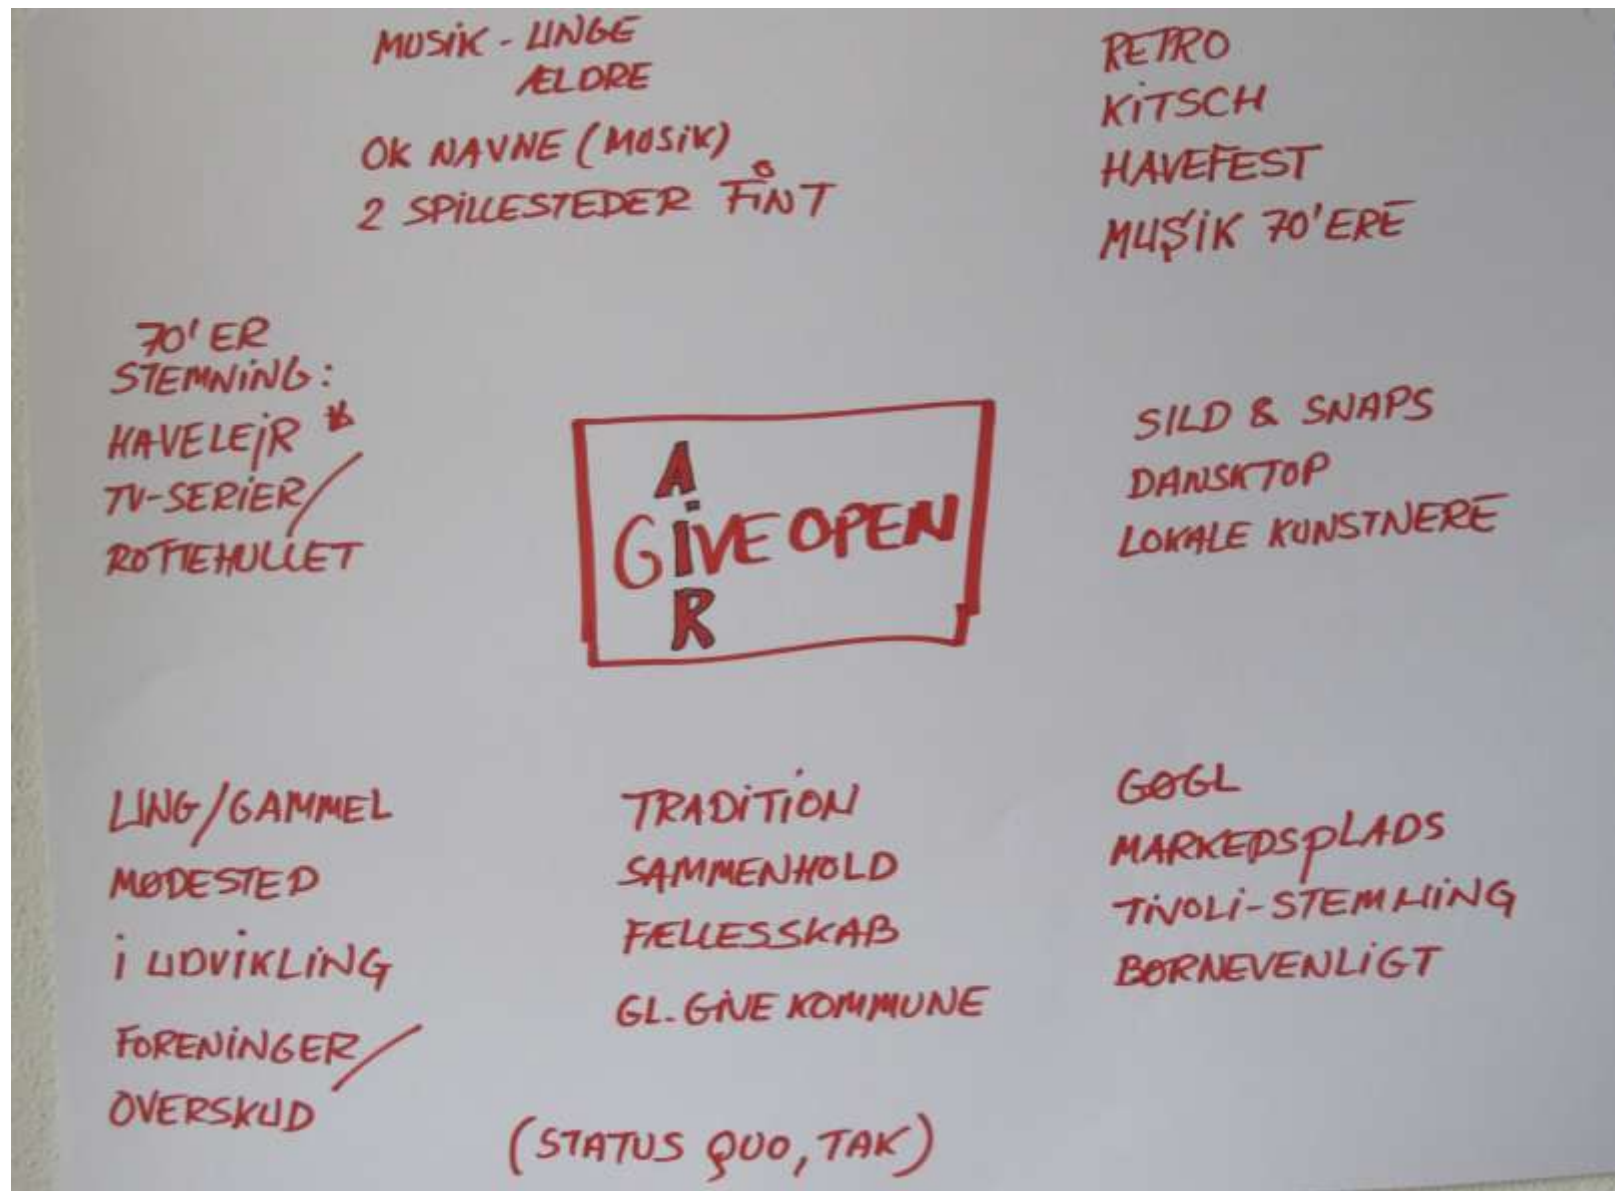 MUSIK - UNGE
ÆLDRE
OK NAVNE (MUSIK)
2 SPILLESTEDER FINT
RETRO
KITSCH
HAVEFEST
MUSIK 70'ERE
70'ER
STEMNING:
HAVELEJR *
TV-SERIER/
ROTTEHULLET
A
GIVE OPEN
R
SILD & SNAPS
DANSKTOP
LOKALE KUNSTNERE
UNG/GAMMEL
MØDESTED
I UDVIKLING
FORENINGER/
OVERSKUD
TRADITION
SAMMENHOLD
FÆLLESSKAB
GL. GIVE KOMMUNE
GØGL
MARKEDSPLADS
TIVOLI-STEMNING
BØRNEVENLIGT
(STATUS QUO, TAK)